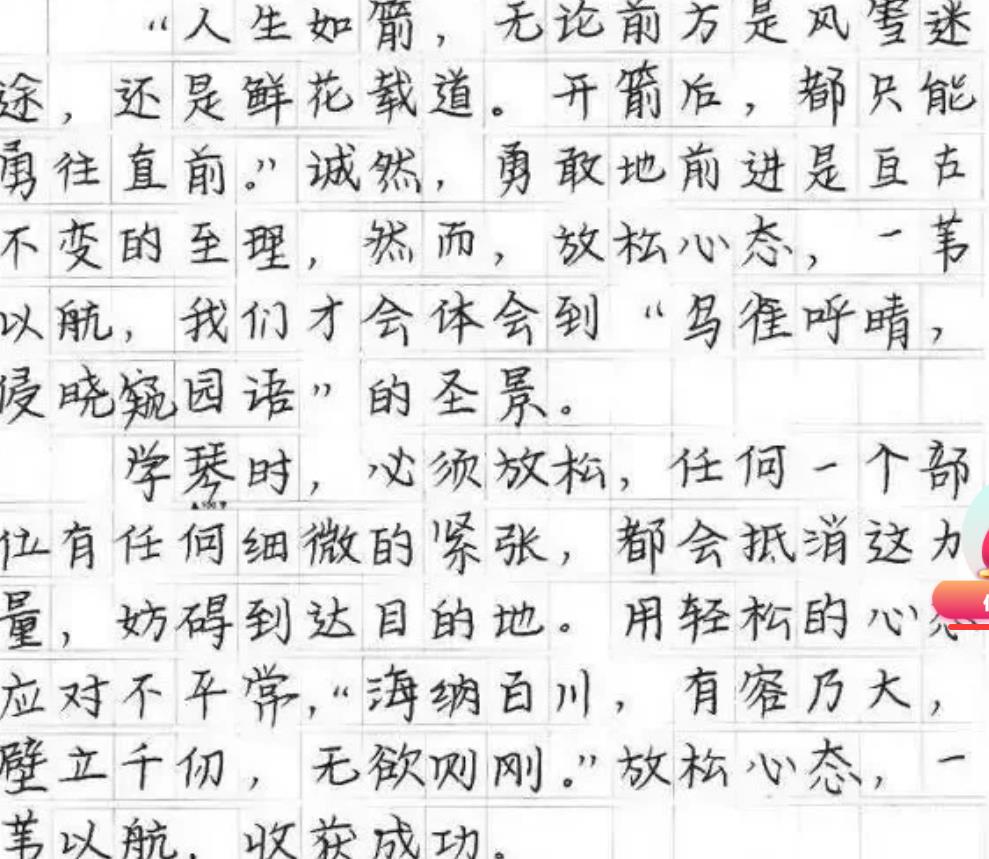 “人生如箭，无论前方是风雪迷
途，还是鲜花载道。开箭后，都只能
勇往直前。”诚然，勇敢地前进是亘古
不变的至理，然而，放松心态，一苇
以航，我们才会体会到“乌雀呼晴，
侵晓窥园语”的圣景。
学琴时，必须放松，任何一个部
位有任何细微的紧张，都会抵消这力
量，妨碍到达目的地。用轻松的心态
应对不平常，“海纳百川，有容乃大，
壁立千仞，无欲则刚。”放松心态，一
苇以航，收获成功。